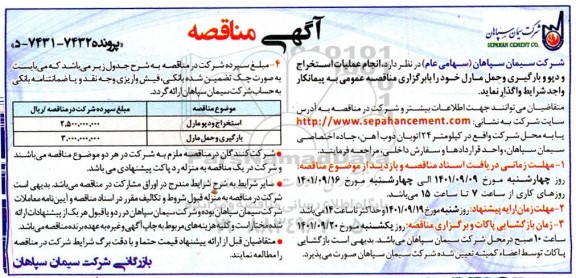 شرکت سیمان سپاهان
SEPAHAN CEMENT CO.
آگهی مناقصه
«پرونده ۷۴۳۲-۷۴۳۱-۵»
شرکت سیمان سپاهان (سهامی عام) در نظر دارد، انجام عملیات استخراج
و دپو و بارگیری وحمل مارل خود را با برگزاری مناقصه عمومی به پیمانکار
واجد شرایط واگذار نماید.
متقاضیان می‌توانند جهت اطلاعات بیشتر و شرکت در مناقصه به آدرس
سایت شرکت به نشانی: http://www.sepahancement.com
یا به محل شرکت واقع در کیلومتر ۲۴ اتوبان ذوب آهن، جاده اختصاصی
سیمان سپاهان، واحد قراردادها و سفارش داخلی، مراجعه فرمایند.
۱- مهلت زمانی دریافت اسناد مناقصه و بازدید از موضوع مناقصه:
روز چهارشنبه مورخ ۱۴۰۱/۰۹/۰۹ الی چهارشنبه مورخ ۱۴۰۱/۰۹/۱۶
روزهای کاری از ساعت ۷ تا ساعت ۱۵ می‌باشد.
۲- مهلت زمان ارایه پیشنهاد: روز شنبه مورخ ۱۴۰۱/۰۹/۱۹ و حداکثر تا ساعت ۱۴ می‌باشد
۳- زمان بازگشایی پاکات و برگزاری مناقصه: روز یکشنبه مورخ ۱۴۰۱/۰۹/۲۰
ساعت ۱۰ صبح در محل شرکت سیمان سپاهان می‌باشد. بدیهی است بازگشایی
پاکات توسط اعضاء کمیته تعیین شده شرکت سیمان سپاهان صورت می‌پذیرد.
۴- مبلغ سپرده شرکت در مناقصه به شرح جدول زیر می‌باشد که می‌بایست
به صورت چک تضمین شده بانکی، فیش واریزی وجه نقد و یا ضمانتنامه بانکی
به حساب شرکت سیمان سپاهان ارائه گردد.
موضوع مناقصه مبلغ سپرده شرکت در مناقصه / ریال
استخراج و دپو مارل ۲,۵۰۰,۰۰۰,۰۰۰
بارگیری و حمل مارل ۳,۰۰۰,۰۰۰,۰۰۰
* شرکت کنندگان در مناقصه ملزم به شرکت در هر دو موضوع مناقصه می‌باشند
و شرکت در یک مناقصه به منزله رد پاکت پیشنهادی می‌باشد.
* سایر شرایط به شرح شرایط مندرج در اوراق مشارکت در مناقصه می‌باشد. بدیهی است
شرکت در مناقصه به منزله قبول شروط و تکالیف مقرر در اسناد مناقصه و آیین‌نامه معاملات
شرکت سیمان سپاهان بوده و شرکت سیمان سپاهان در رد و یا قبول هر یک از پیشنهادات ارائه
شده مختار است و کلیه هزینه‌های مربوط به چاپ آگهی و غیره به عهده برنده مناقصه می‌باشد.
* متقاضیان قبل از ارائه پیشنهاد قیمت حتما و با دقت برگ شرایط شرکت در مناقصه
را مطالعه نمایند.
بازرگانی شرکت سیمان سپاهان